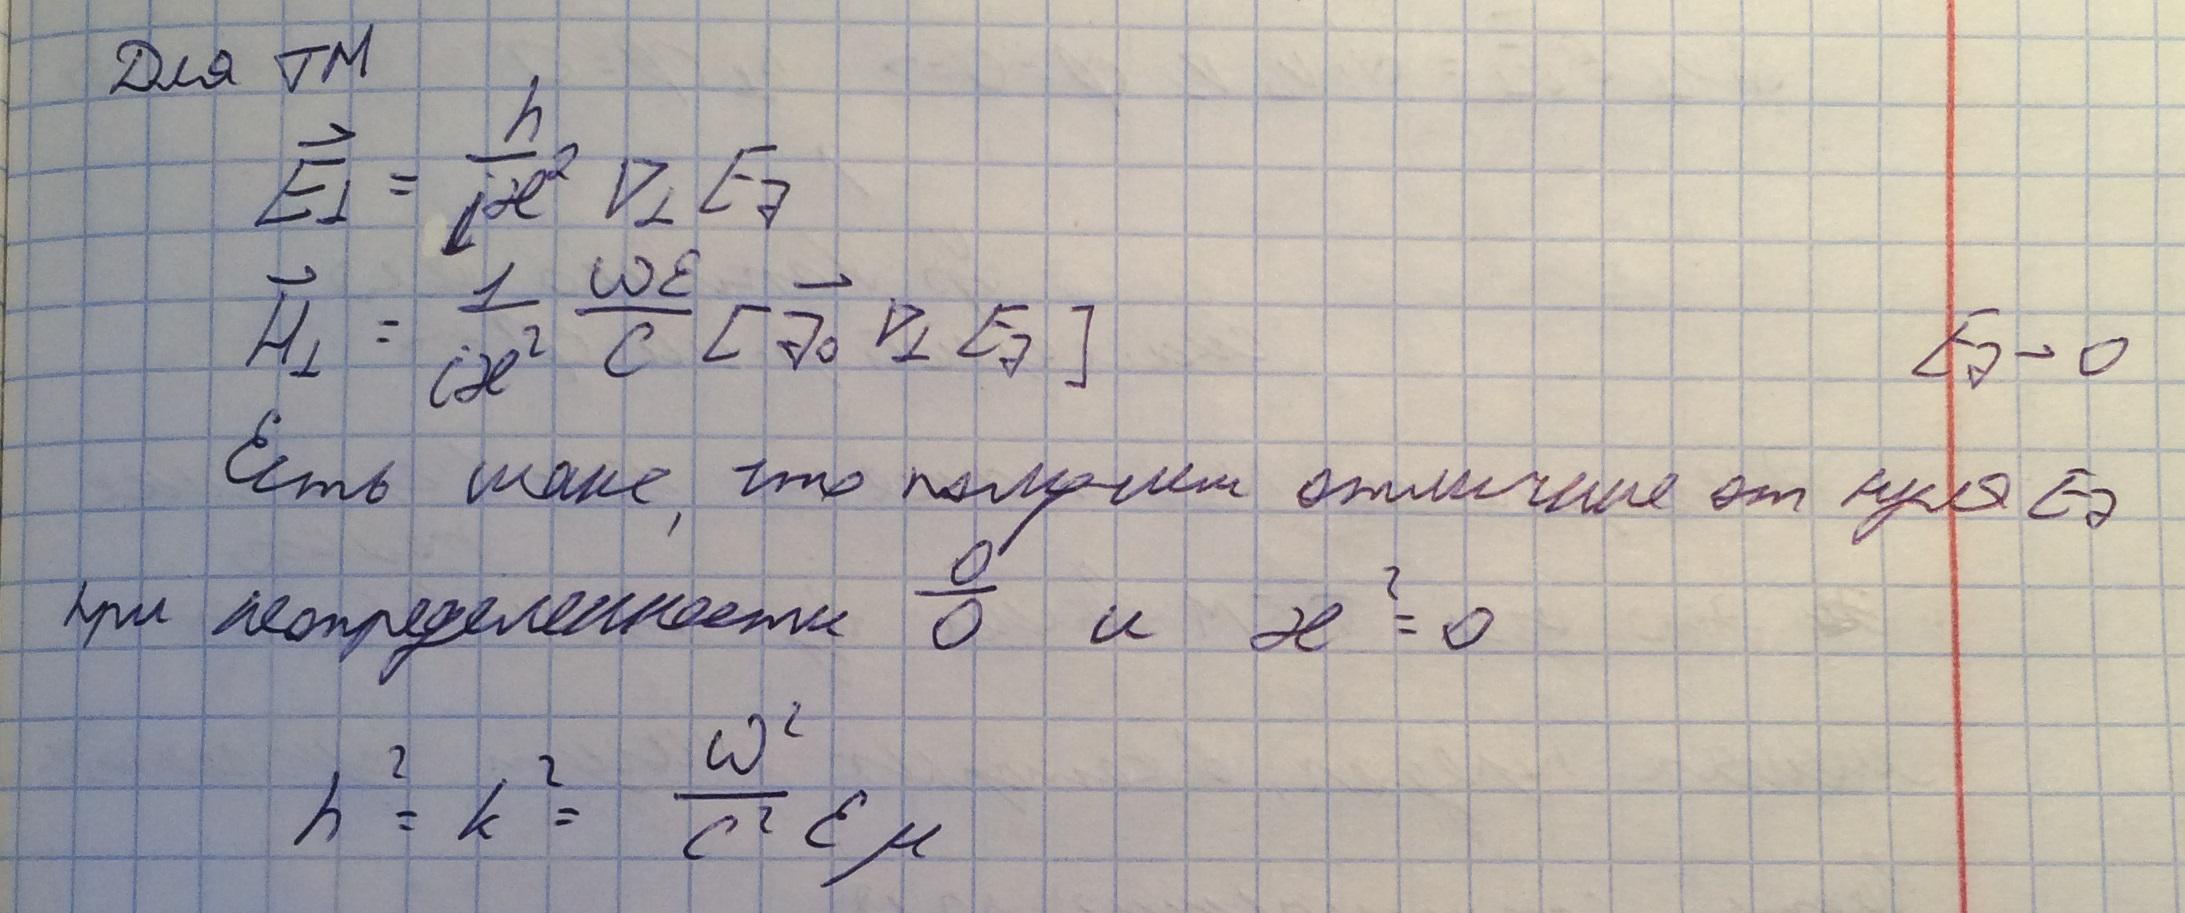 Для TM
E⃗⊥ = h/(iæ²) ∇⊥ Ez
H⃗⊥ = 1/(iæ²) ωε/c [z⃗₀ ∇⊥ Ez]
Ez → 0
Есть шанс, что получим отличие от нуля Ez
при неопределенности 0/0 и æ² = 0
h² = k² = ω²/c² εμ